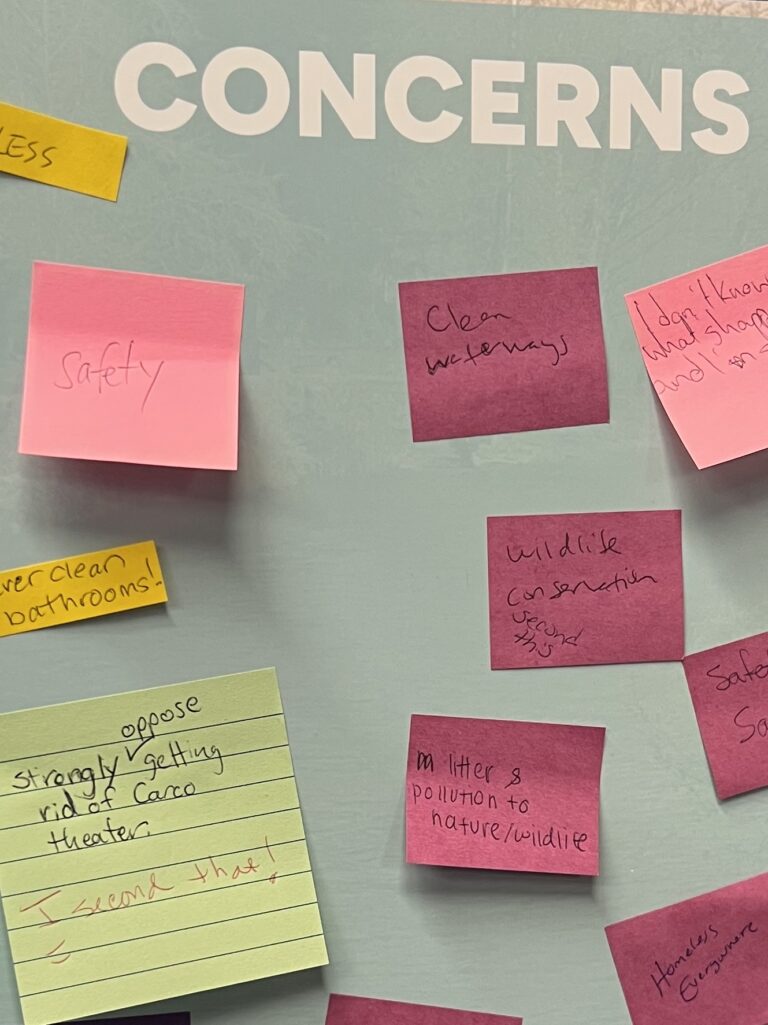 CONCERNS
LESS
Safety
Clean
waterways
I don't know
what's happ
and I'm
ver clean
bathrooms!
wildlife
conservation
second
this
Safe
Sa
oppose
strongly getting
rid of Carco
theater.
I second that!
litter &
pollution to
nature/wildlife
Homeless
Everywhere